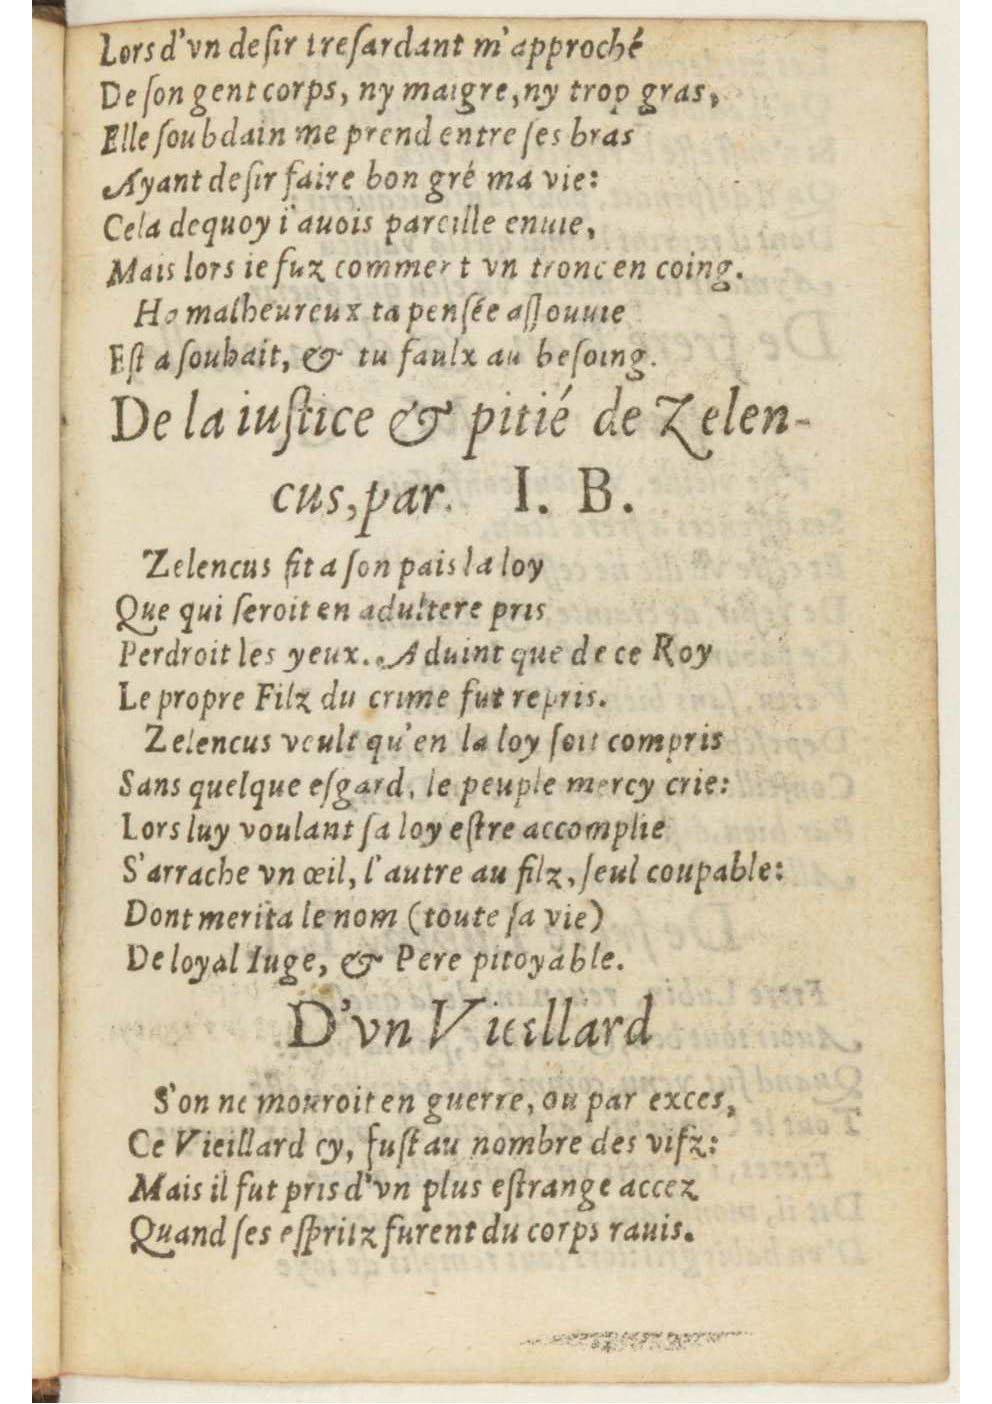 Lors d'vn deſir treſardant m'approché
De ſon gent corps, ny maigre, ny trop gras,
Elle ſoubdain me prend entre ſes bras
Ayant deſir faire bon gré ma vie:
Cela dequoy i'auois pareille enuie,
Mais lors ie fuz comment vn tronc en coing.
Ha malheureux ta penſée aſſouuie
Eſt a ſouhait, & tu faulx au beſoing.
De la iuſtice & pitié de Zelen-
cus, par. I. B.
Zelencus fit a ſon pais la loy
Que qui ſeroit en adultere pris
Perdroit les yeux. Aduint que de ce Roy
Le propre Filz du crime fut repris.
Zelencus veult qu'en la loy ſoit compris
Sans quelque eſgard, le peuple mercy crie:
Lors luy voulant ſa loy eſtre accomplie
S'arrache vn œil, l'autre au filz, ſeul coupable:
Dont merita le nom (toute ſa vie)
De loyal Iuge, & Pere pitoyable.
D'vn Vieillard
S'on ne mouroit en guerre, ou par exces,
Ce Vieillard cy, fuſt au nombre des vifz:
Mais il fut pris d'vn plus eſtrange accez
Quand ſes eſpritz furent du corps rauis.